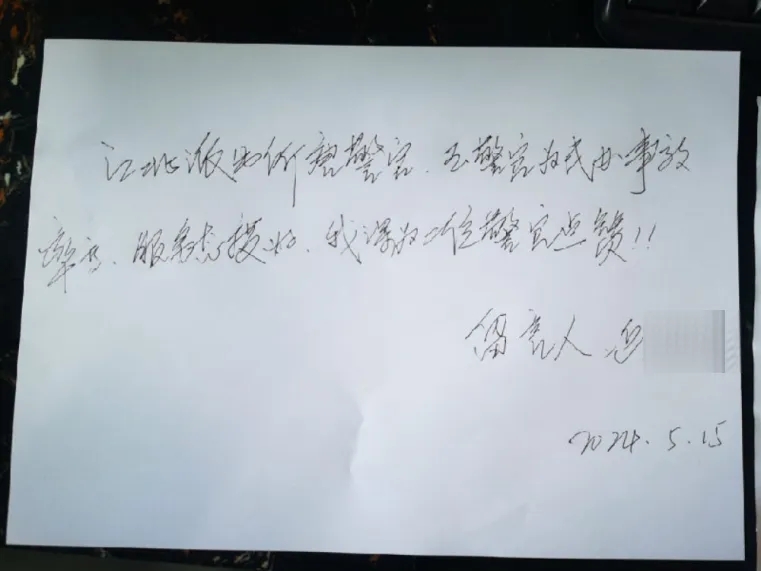 江北派出所警官、王警官为民办事效
率高、服务态度好、我得为二位警官点赞!!
留言人
2024.5.15